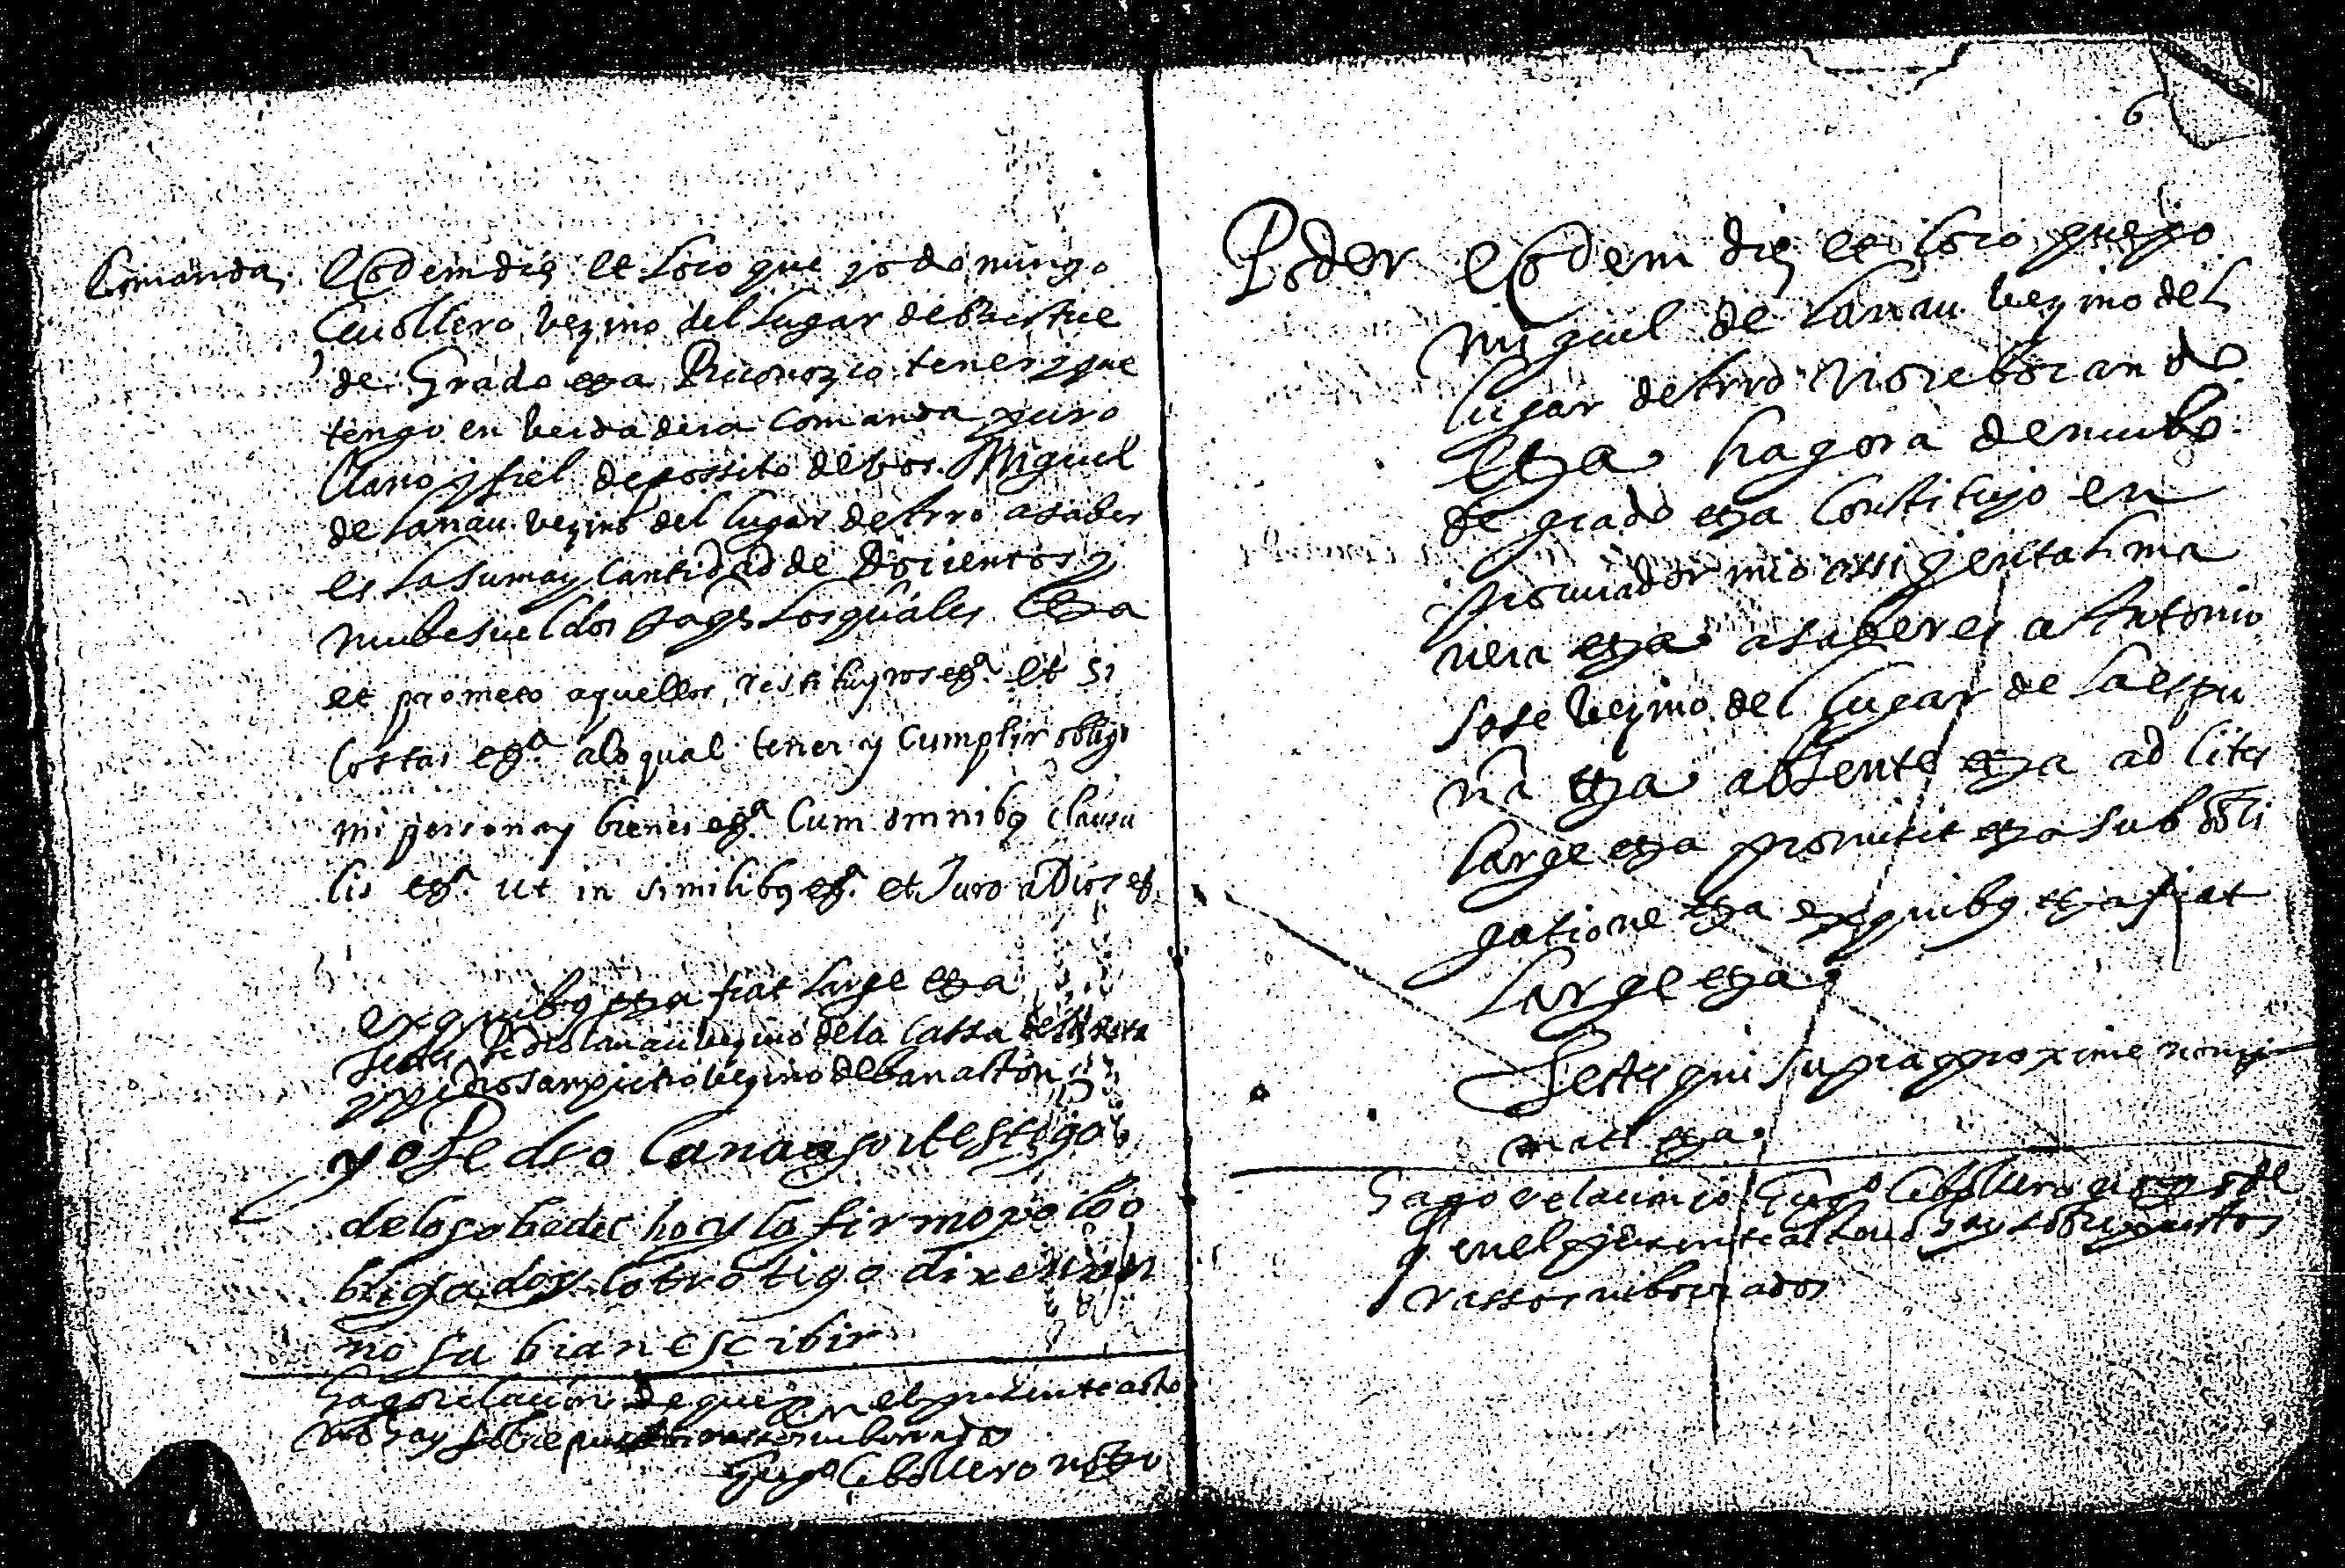 Comanda
Eodem die et loco que yo domingo
Ceuollero vezino del lugar de
de Grado etza Reconozco tener y que
tengo en verdadera comanda puro
llano y fiel depossito de vos Miguel
de lanau vezino del lugar de Arro a saber
es la suma y cantidad de Docientos y
nuebe sueldos Jaqs los quales etza
et prometo aquellos restituyros etza et si
costas etza alo qual tener y cumplir obligo
mi persona y bienes etza Cum omnibq clausu
lis etza ut in similibq etza et Juro a Dios etz
ex quibq etza fiat large etza
testes Pedro lanau vezino de la Cassa
y pedro sampietro vezino de banaston
yo Pedro lanao so i testigo
delo sobredicho y lo firmo por lo o
bligado y lotro tigo dixeron
no sabian escribir
Hago relacion de que en el presente acto
no hay sobrepuesto
Cebollero notro
6
Poder Eodem die et loco que yo
Miguel de lanau vezino del
lugar de Arro no rebocando
etza hagora de nuebo
de grado etza Constituyo en
procurador mio assi y en tal ma
nera etza a saber es a Antonio
Sose vezino del lugar de laespu
ña etza absente etza ad lites
large etza promitit etza sub obli
gatione etza ex quibq etza fiat
large etza
Testes qui supra proxime nomi
nati etza
Hago relacion yo Cebollero
en el presente acto no hay sobrepuestos
rassos ni borrados